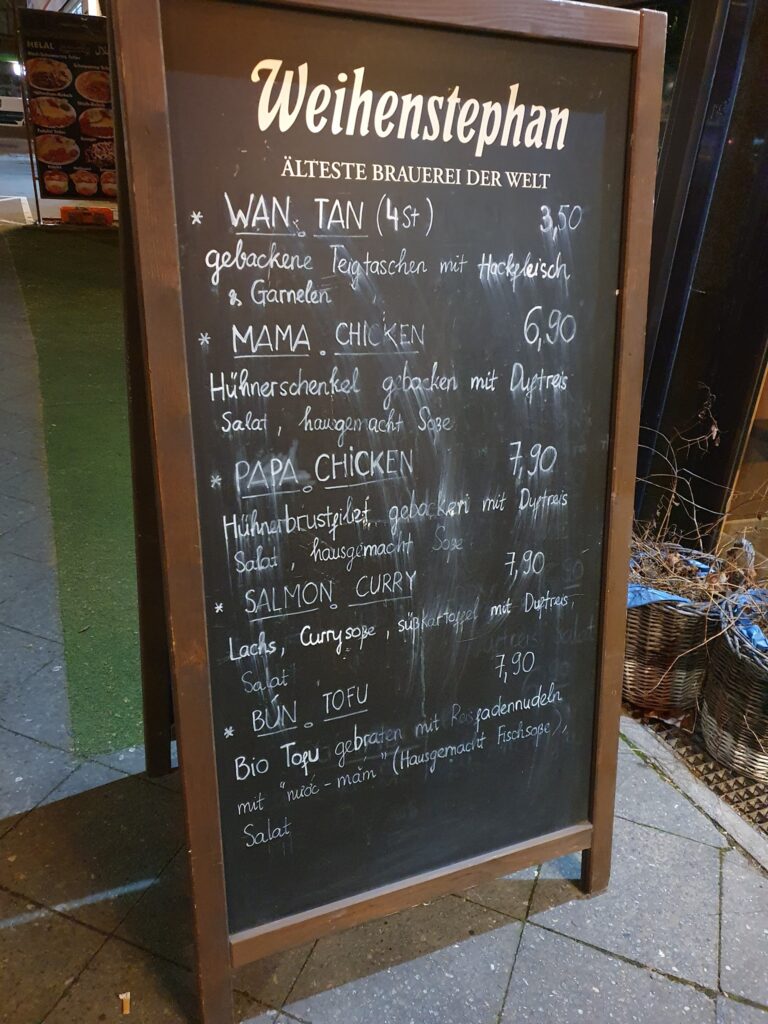 HELAL
Weihenstephan
ÄLTESTE BRAUEREI DER WELT
* WAN. TAN (4St) 3,50
gebackene Teigtaschen mit Hackfleisch
& Garnelen
* MAMA. CHICKEN 6,90
Hühnerschenkel gebacken mit Duftreis
Salat, hausgemacht Soße
* PAPA. CHiCKEN 7,90
Hühnerbrustfilet gebacken mit Duftreis
Salat, hausgemacht Soße
* SALMON. CURRY 7,90
Lachs, Currysoße, süßkartoffel mit Duftreis,
Salat
* BÚN. TOFU 7,90
Bio Tofu gebraten mit Reisfadennudeln
mit "nước-mắm" (Hausgemacht Fischsoße),
Salat